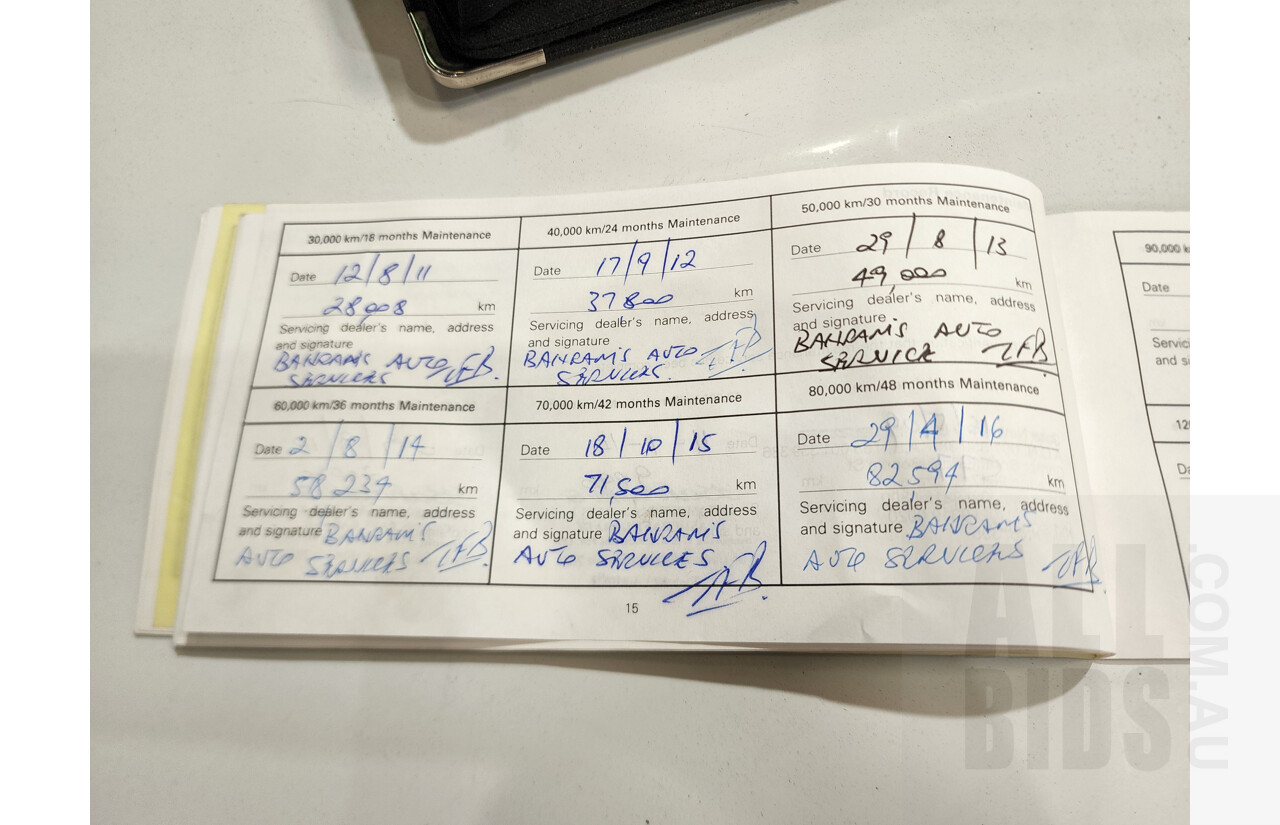 30,000 km/18 months Maintenance
Date 12/8/11
28,008 km
Servicing dealer's name, address
and signature
BAHRAM'S AUTO
SERVICES
40,000 km/24 months Maintenance
Date 17/9/12
37800 km
Servicing dealer's name, address
and signature
BAHRAM'S AUTO
SERVICES.
50,000 km/30 months Maintenance
Date 29/8/13
49,000 km
Servicing dealer's name, address
and signature
BAHRAM'S AUTO
SERVICE
60,000 km/36 months Maintenance
Date 2/8/14
58 234 km
Servicing dealer's name, address
and signature BAHRAM'S
AUTO SERVICES
70,000 km/42 months Maintenance
Date 18/10/15
71,500 km
Servicing dealer's name, address
and signature BAHRAM'S
AUTO SERVICES
80,000 km/48 months Maintenance
Date 29/4/16
82,594 km
Servicing dealer's name, address
and signature BAHRAM'S
AUTO SERVICES
15
90,000 k
Date
Servic
and si
ALL
BIDS
.COM.AU